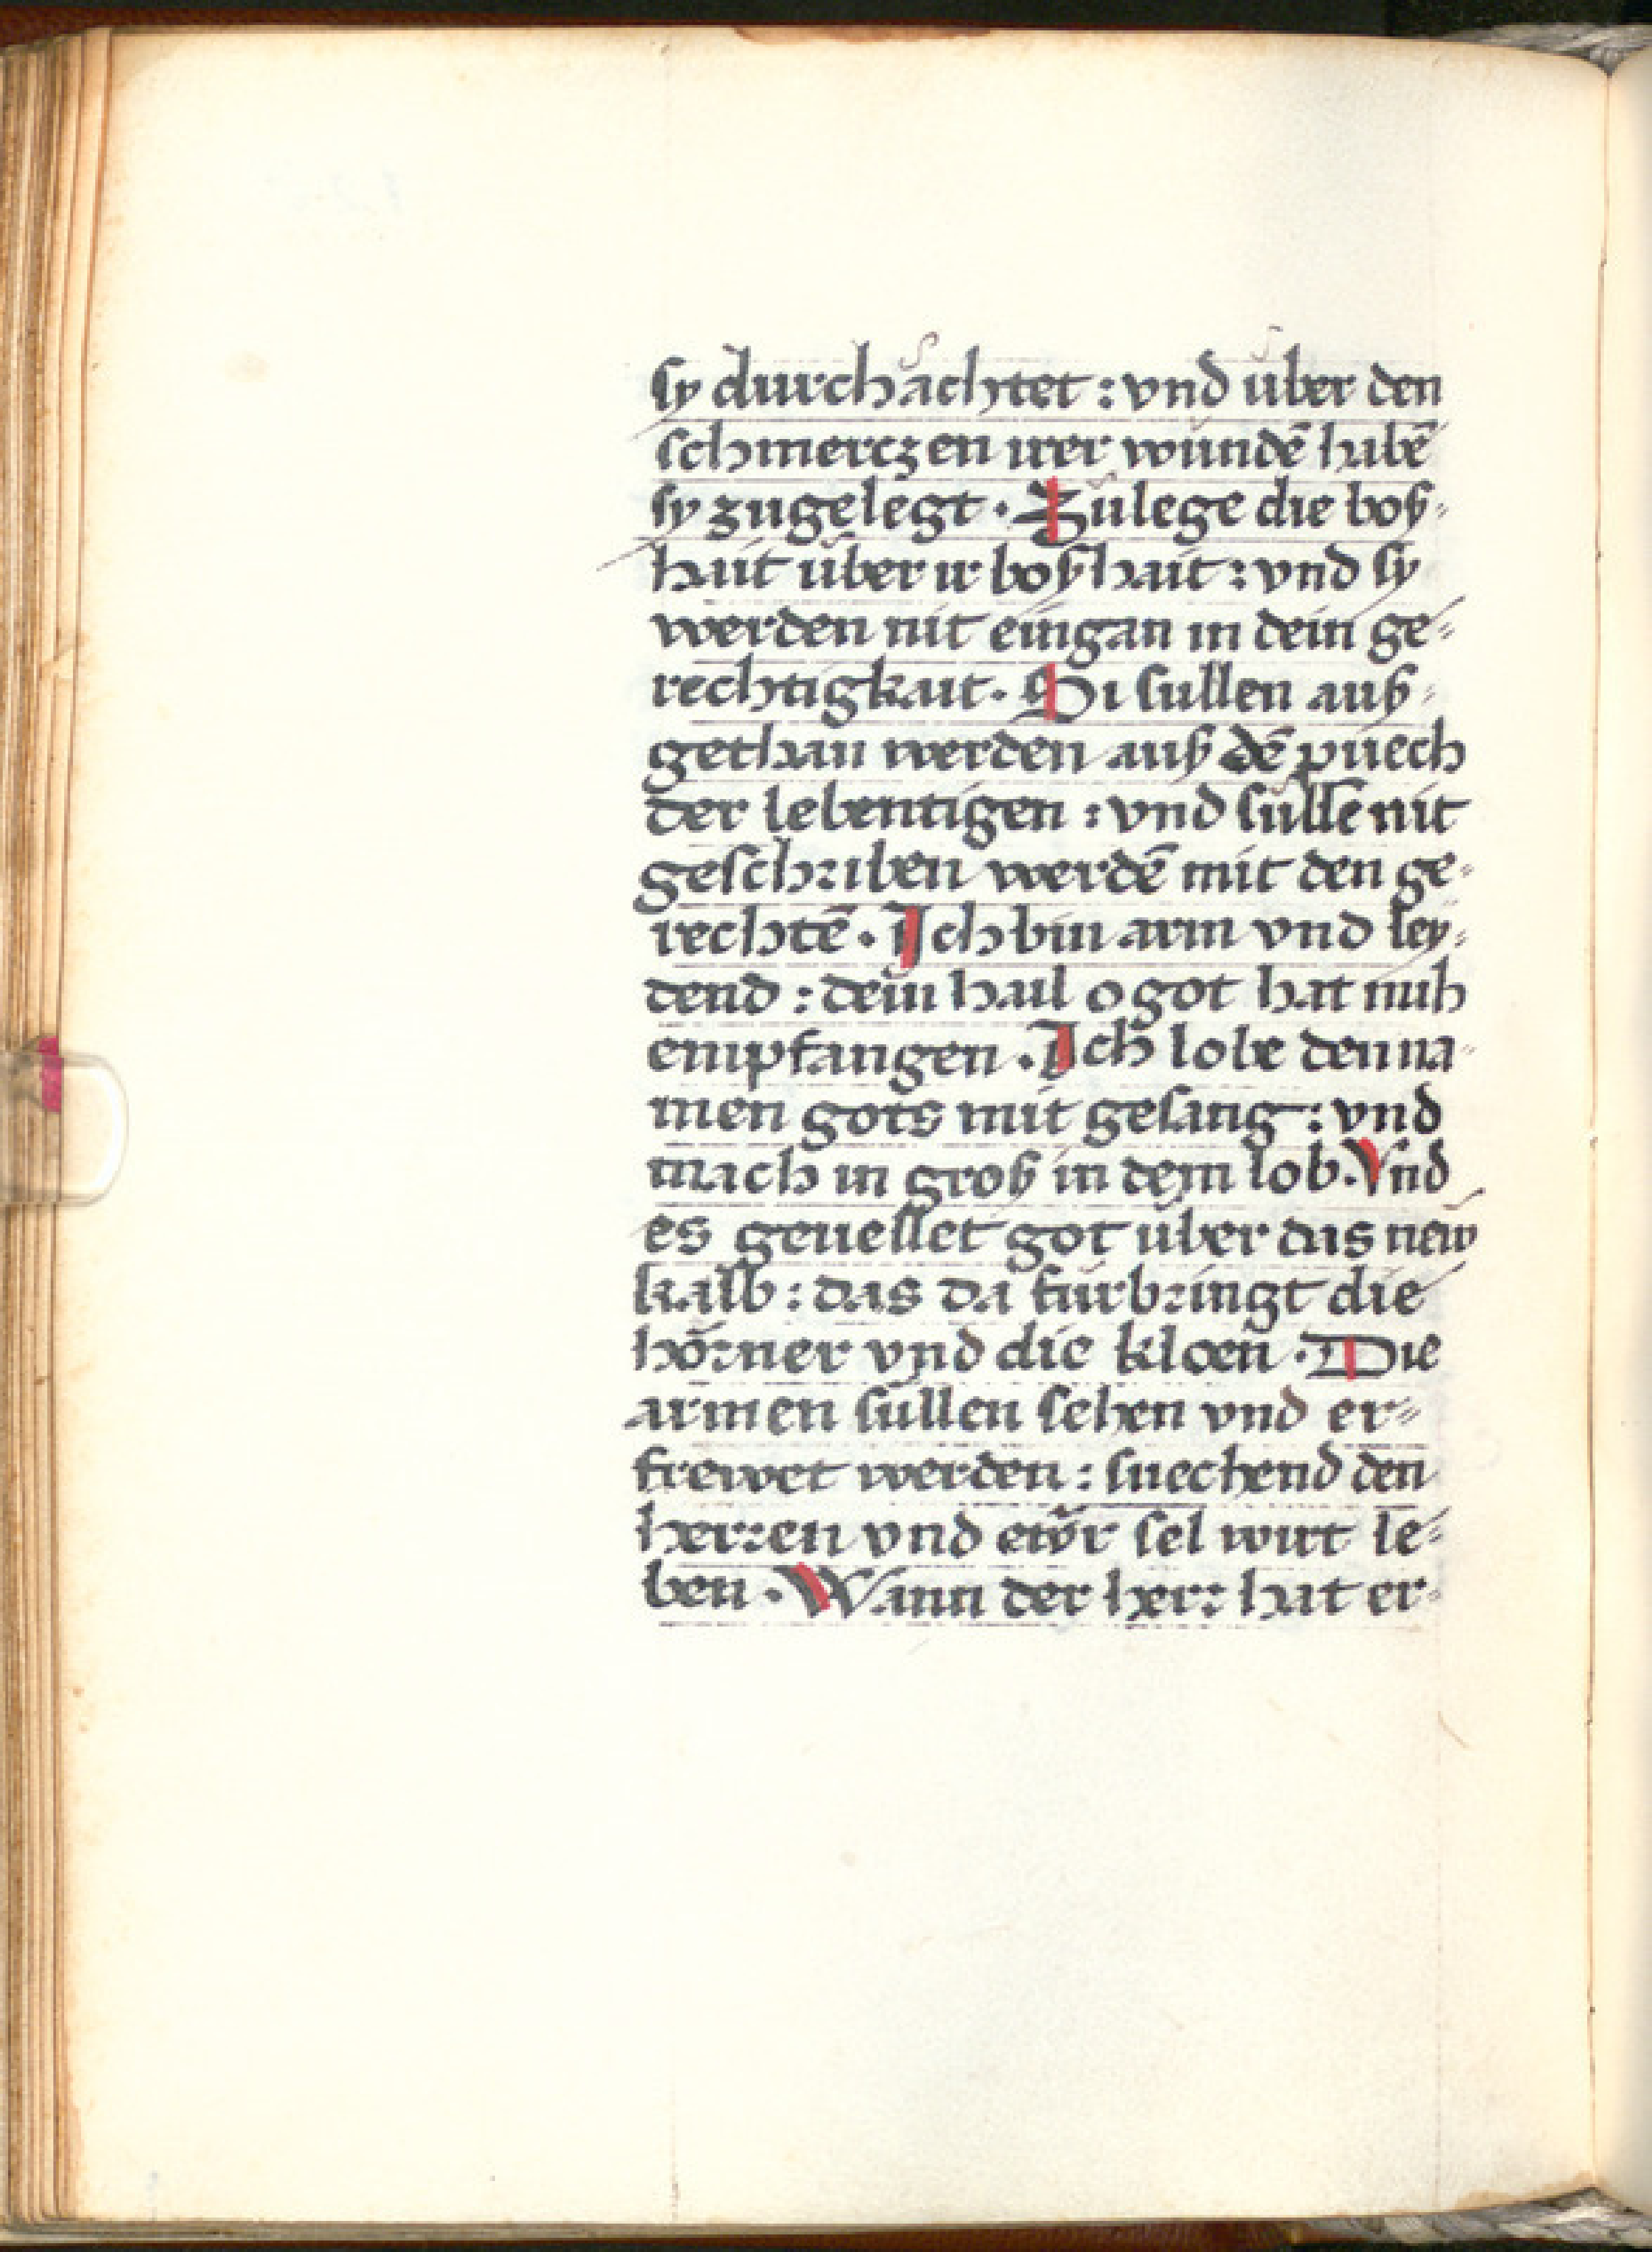 sy durchåchtet : vnd ůber den
schmerczen irer wundē habē
sy zugelegt · Zůlege die bosz⸗
hait ůber ir boszhait : vnd sy
werden nit eingan in dein ge⸗
rechtigkait · Si sullen ausz⸗
gethan werden ausz dē puech
der lebentigen : vnd sůllē nit
geschriben werdē mit den ge⸗
rechtē · Ich bin arm vnd ley⸗
dend : dein hail o got hat mich
empfangen · Ich lobe den na⸗
men gots mit gesang : vnd
mach in grosz in dem lob · Vnd
es geuellet got über das new
kalb : das da fürbringt die
hörner vnd die kloen · Die
armen sullen sehen vnd er⸗
frewet werden : suechend den
herren vnd ewr sel wirt le⸗
ben · Wann der herr hat er⸗